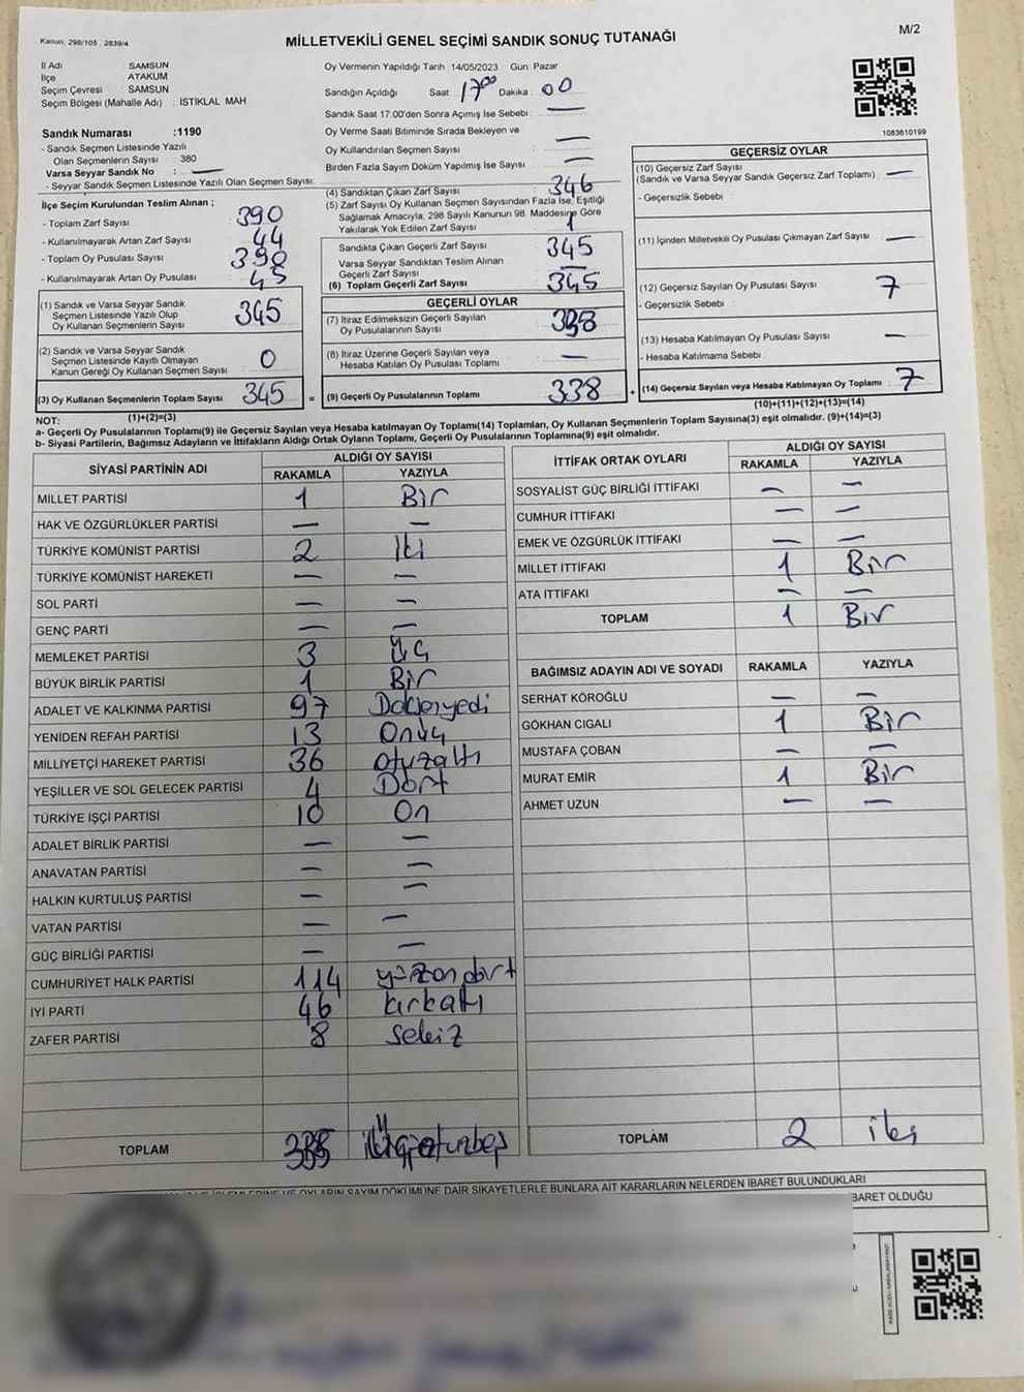 Kanun: 298/105 , 2839/4
MİLLETVEKİLİ GENEL SEÇİMİ SANDIK SONUÇ TUTANAĞI
M/2
İl Adı SAMSUN
İlçe ATAKUM
Seçim Çevresi SAMSUN
Seçim Bölgesi (Mahalle Adı) : İSTİKLAL MAH
Oy Vermenin Yapıldığı Tarih 14/05/2023 Gün: Pazar
Sandığın Açıldığı Saat 17:00 Dakika : 00
Sandık Saat 17.00'den Sonra Açımış İse Sebebi : —
Oy Verme Saati Bitiminde Sırada Bekleyen ve
Oy Kullandırılan Seçmen Sayısı : —
Birden Fazla Sayım Döküm Yapılmış İse Sayısı —
1083610199
Sandık Numarası :1190
- Sandık Seçmen Listesinde Yazılı
Olan Seçmenlerin Sayısı : 380
Varsa Seyyar Sandık No : —
- Seyyar Sandık Seçmen Listesinde Yazılı Olan Seçmen Sayısı:
İlçe Seçim Kurulundan Teslim Alınan ;
- Toplam Zarf Sayısı 390
- Kullanılmayarak Artan Zarf Sayısı 44
- Toplam Oy Pusulası Sayısı 390
- Kullanılmayarak Artan Oy Pusulası 45
(1) Sandık ve Varsa Seyyar Sandık
Seçmen Listesinde Yazılı Olup
Oy Kullanan Seçmenlerin Sayısı 345
(2) Sandık ve Varsa Seyyar Sandık
Seçmen Listesinde Kayıtlı Olmayan
Kanun Gereği Oy Kullanan Seçmen Sayısı 0
(3) Oy Kullanan Seçmenlerin Toplam Sayısı 345 =
(1)+(2)=(3)
(4) Sandıktan Çıkan Zarf Sayısı 346
(5) Zarf Sayısı Oy Kullanan Seçmen Sayısından Fazla İse, Eşitliği
Sağlamak Amacıyla, 298 Sayılı Kanunun 98. Maddesine Göre
Yakılarak Yok Edilen Zarf Sayısı 1
Sandıkta Çıkan Geçerli Zarf Sayısı 345
Varsa Seyyar Sandıktan Teslim Alınan
Geçerli Zarf Sayısı —
(6) Toplam Geçerli Zarf Sayısı 345
GEÇERLİ OYLAR
(7) İtiraz Edilmeksizin Geçerli Sayılan
Oy Pusulalarının Sayısı 338
(8) İtiraz Üzerine Geçerli Sayılan veya
Hesaba Katılan Oy Pusulası Toplamı —
(9) Geçerli Oy Pusulalarının Toplamı 338 +
GEÇERSİZ OYLAR
(10) Geçersiz Zarf Sayısı
(Sandık ve Varsa Seyyar Sandık Geçersiz Zarf Toplamı) —
- Geçersizlik Sebebi :
(11) İçinden Milletvekili Oy Pusulası Çıkmayan Zarf Sayısı —
(12) Geçersiz Sayılan Oy Pusulası Sayısı 7
- Geçersizlik Sebebi :
(13) Hesaba Katılmayan Oy Pusulası Sayısı —
- Hesaba Katılmama Sebebi
(14) Geçersiz Sayılan veya Hesaba Katılmayan Oy Toplamı 7
(10)+(11)+(12)+(13)=(14)
NOT:
a- Geçerli Oy Pusulalarının Toplamı(9) ile Geçersiz Sayılan veya Hesaba katılmayan Oy Toplamı(14) Toplamları, Oy Kullanan Seçmenlerin Toplam Sayısına(3) eşit olmalıdır. (9)+(14)=(3)
b- Siyasi Partilerin, Bağımsız Adayların ve İttifakların Aldığı Ortak Oyların Toplamı, Geçerli Oy Pusulalarının Toplamına(9) eşit olmalıdır.
SİYASİ PARTİNİN ADI ALDIĞI OY SAYISI
RAKAMLA YAZIYLA
MİLLET PARTİSİ 1 Bir
HAK VE ÖZGÜRLÜKLER PARTİSİ — —
TÜRKİYE KOMÜNİST PARTİSİ 2 İki
TÜRKİYE KOMÜNİST HAREKETİ — —
SOL PARTİ — —
GENÇ PARTİ — —
MEMLEKET PARTİSİ 3 Üç
BÜYÜK BİRLİK PARTİSİ 1 Bir
ADALET VE KALKINMA PARTİSİ 97 Doksanyedi
YENİDEN REFAH PARTİSİ 13 Onüç
MİLLİYETÇİ HAREKET PARTİSİ 36 otuzaltı
YEŞİLLER VE SOL GELECEK PARTİSİ 4 Dört
TÜRKİYE İŞÇİ PARTİSİ 10 On
ADALET BİRLİK PARTİSİ — —
ANAVATAN PARTİSİ — —
HALKIN KURTULUŞ PARTİSİ — —
VATAN PARTİSİ — —
GÜÇ BİRLİĞİ PARTİSİ — —
CUMHURİYET HALK PARTİSİ 114 yüzondört
İYİ PARTİ 46 kırkaltı
ZAFER PARTİSİ 8 sekiz
TOPLAM 335
İTTİFAK ORTAK OYLARI ALDIĞI OY SAYISI
RAKAMLA YAZIYLA
SOSYALİST GÜÇ BİRLİĞİ İTTİFAKI — —
CUMHUR İTTİFAKI — —
EMEK VE ÖZGÜRLÜK İTTİFAKI — —
MİLLET İTTİFAKI 1 Bir
ATA İTTİFAKI — —
TOPLAM 1 Bir
BAĞIMSIZ ADAYIN ADI VE SOYADI RAKAMLA YAZIYLA
SERHAT KÖROĞLU — —
GÖKHAN CIGALI 1 Bir
MUSTAFA ÇOBAN — —
MURAT EMİR 1 Bir
AHMET UZUN — —
TOPLAM 2 iki
OYLARIN SAYIM DÖKÜMÜNE DAİR ŞİKAYETLERLE BUNLARA AİT KARARLARIN NELERDEN İBARET BULUNDUKLARI
BARET OLDUĞU